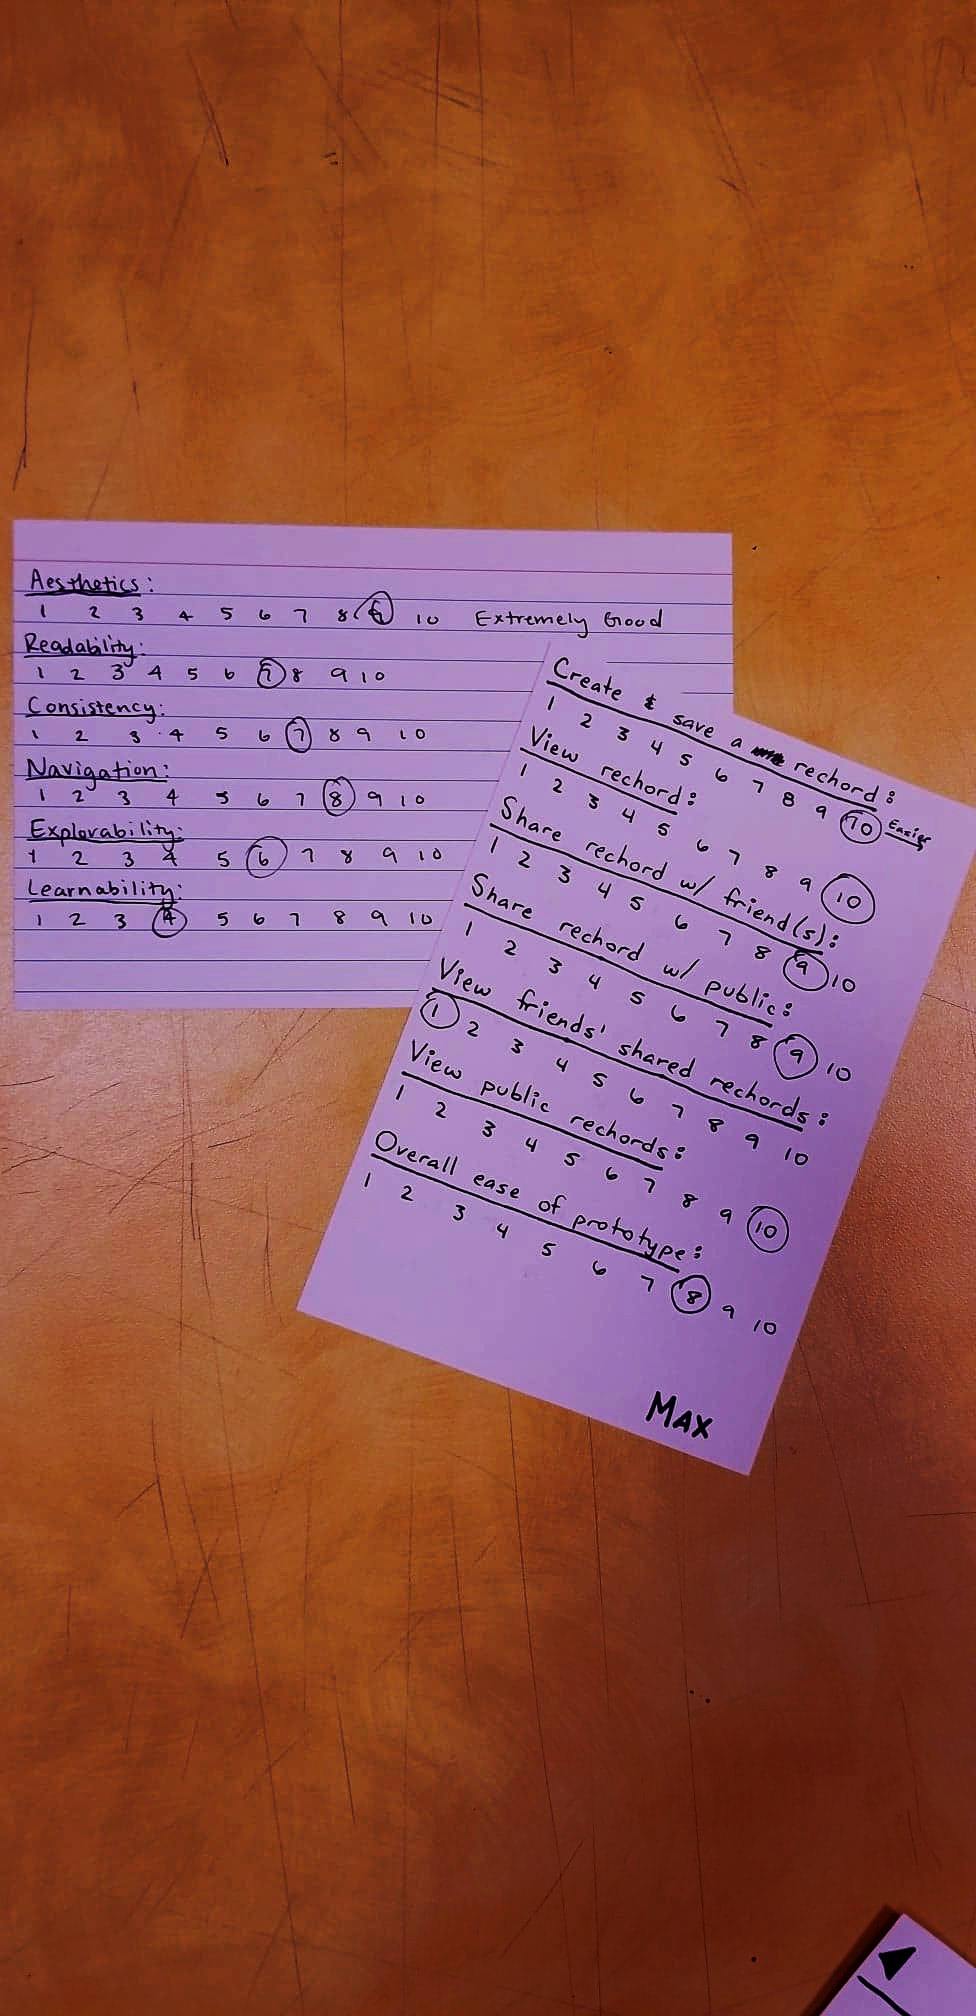 Aesthetics:
1 2 3 4 5 6 7 8 9 10 Extremely Good
Readability:
1 2 3 4 5 6 7 8 9 10
Consistency:
1 2 3 4 5 6 7 8 9 10
Navigation:
1 2 3 4 5 6 7 8 9 10
Explorability:
1 2 3 4 5 6 7 8 9 10
Learnability:
1 2 3 4 5 6 7 8 9 10
Create & save a rechord:
1 2 3 4 5 6 7 8 9 10 Easier
View rechord:
1 2 3 4 5 6 7 8 9 10
Share rechord w/ friend(s):
1 2 3 4 5 6 7 8 9 10
Share rechord w/ public:
1 2 3 4 5 6 7 8 9 10
View friends' shared rechords:
1 2 3 4 5 6 7 8 9 10
View public rechords:
1 2 3 4 5 6 7 8 9 10
Overall ease of prototype:
1 2 3 4 5 6 7 8 9 10
MAX